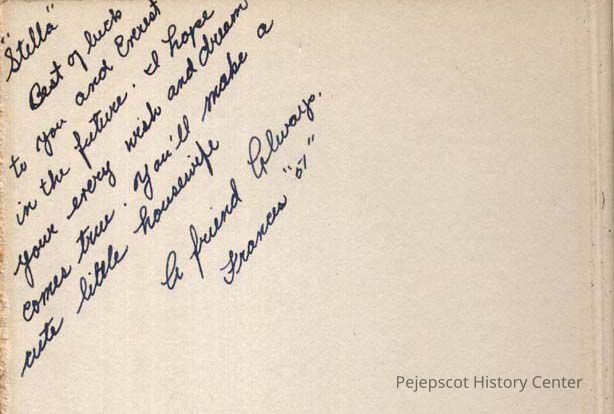 "Stella"
Best of luck
to you and Everest
in the future. I hope
your every wish and dream
comes true. You'll make a
cute little housewife
A friend Always.
Frances "57"
Pejepscot History Center